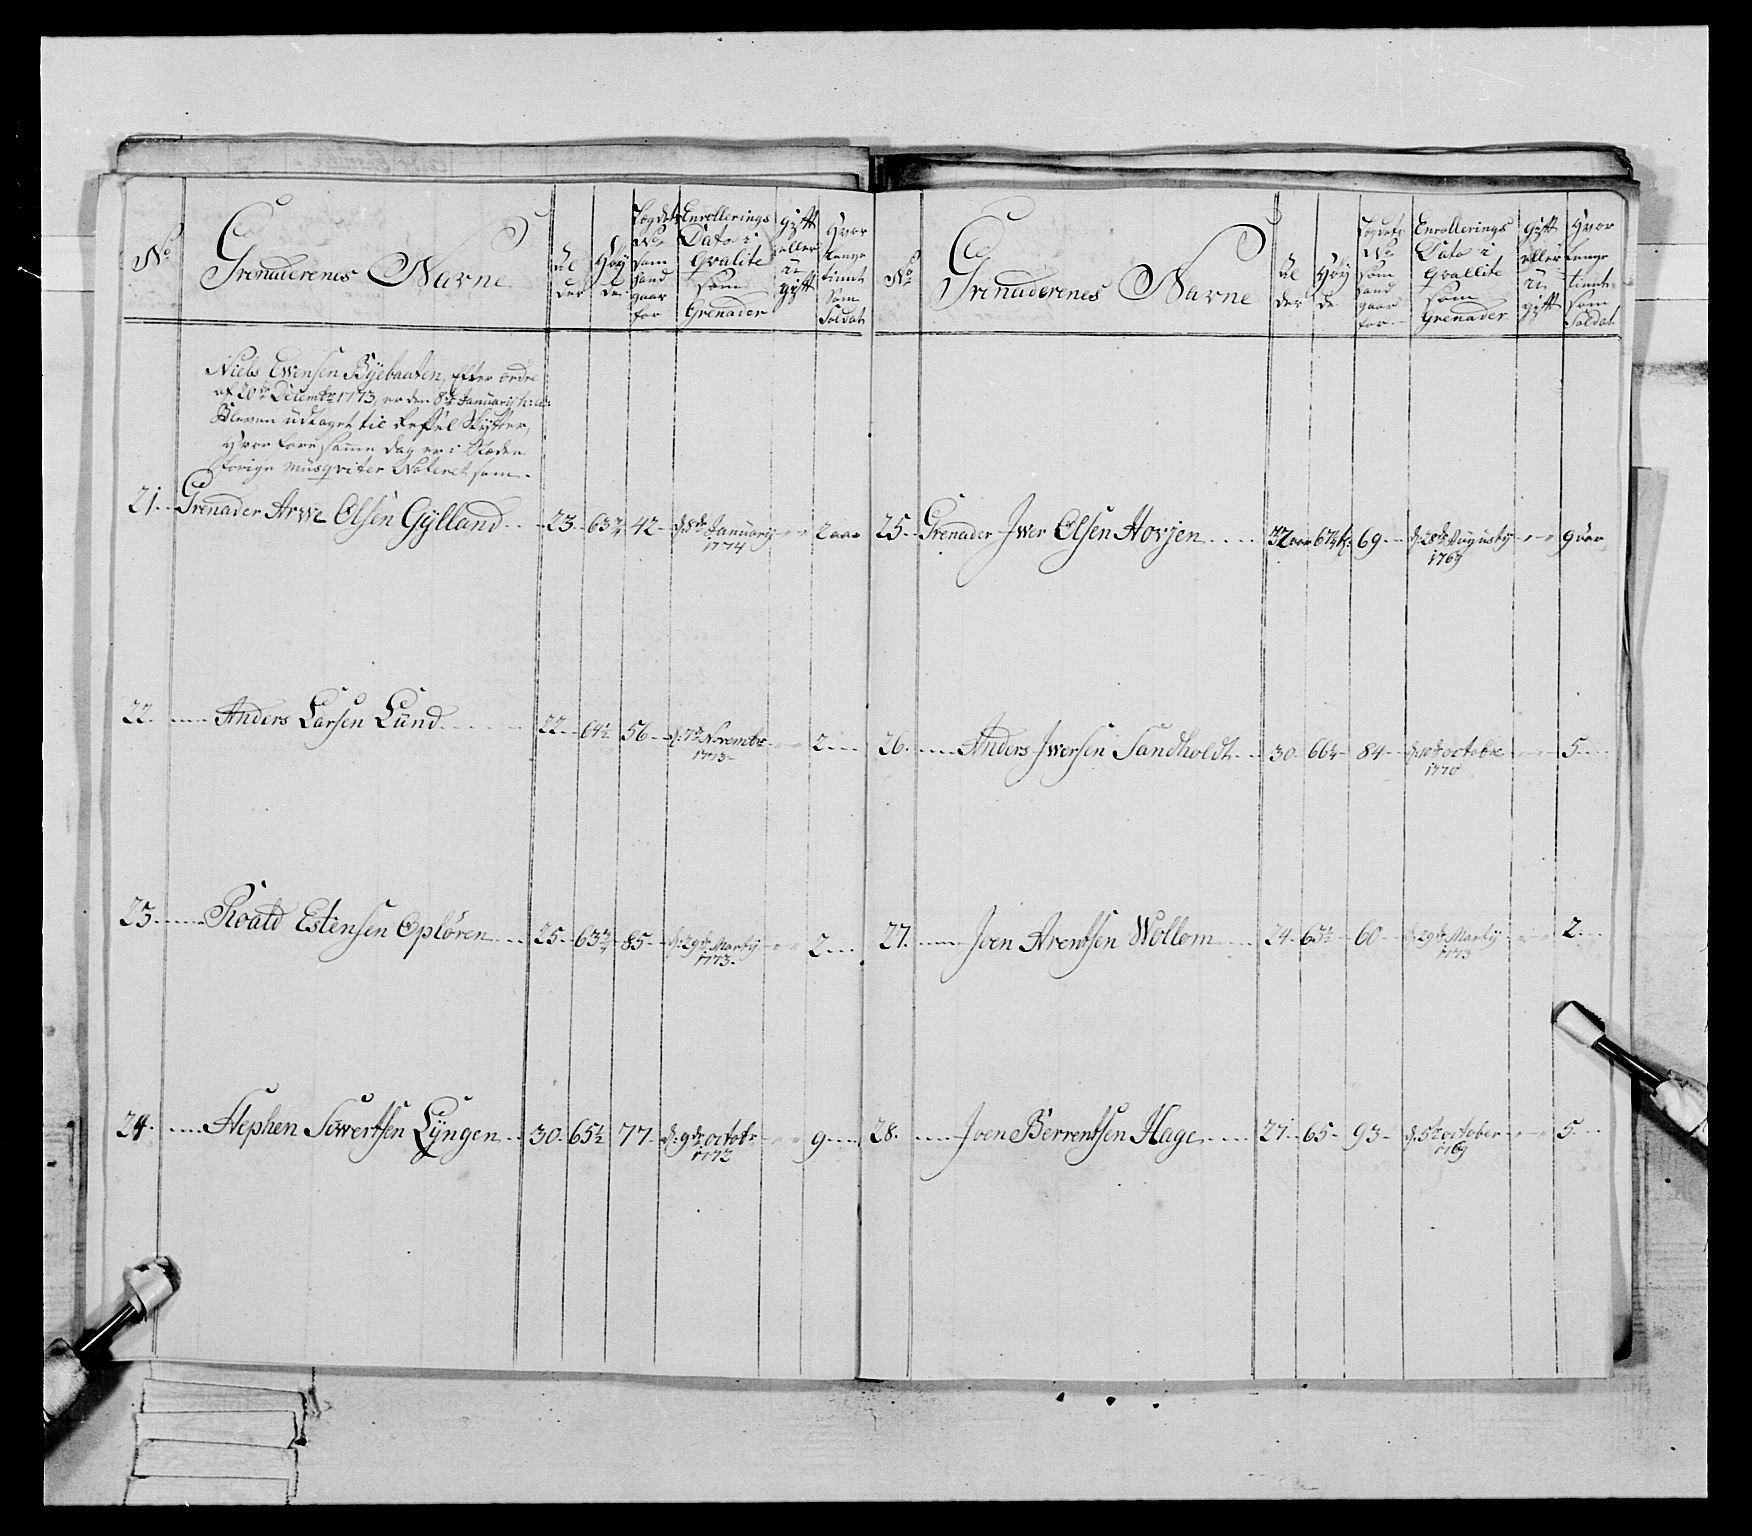 No
Grenaderenes Navne
Al
der
Høy
de
Lægdets
No
som
hand
gaar
for
Enrollerings
Dato i
Qvalite
som
Grenader
Gift
eller
u
gift
Hvor
længe
tient
som
Soldat
Niels Ewensen Byebaaten, Efter ordre
af 20de Decembr 1773, er den 8de Januarij h: a:
Bleven udtaget til Reffel Skytter,
Hvor fore samme dag er i Stæden
forige Musqviter Noteret som
21. Grenader Arwe Olsen Gylland 23 63 3/4 42 d. 8de Januarij 1774 2 aar
22. Anders Larsen Lund 22 64 1/2 56 d. 7de Novembr 1773 2
23. Roald Estensen Opløren 25 63 3/4 85 d. 29de Martij 1773 2
24. Stephen Siwertsen Lyngen 30 65 1/2 77 d. 9de octobr 1772 9
No
Grenaderenes Navne
Al
der
Høy
de
Lægdets
No
som
hand
gaar
for
Enrollerings
Dato i
Qvallite
som
Grenader
Gift
eller
u
gift
Hvor
længe
tient
som
Soldat
25. Grenader Iwer Olsen Hovjen 32 aar 67 1/4 t: 69 d. 28de Augusty 1769 9 aar
26. Anders Iwersen Sandholdt 30 66 1/4 84 d. 10de octobr 1770 5
27. Joen Arentsen Wollom 24 63 1/2 60 d. 29de Martij 1773 2
28. Joen Berrentsen Hage 27 65 93 d. 5te october 1769 5